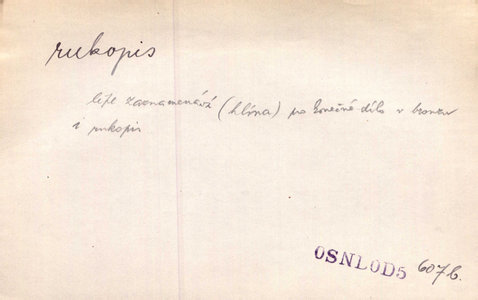 rukopis
lépe zaznamenává (hlína) po konečné dílo v bronzu
i rukopis
OSNLOD5 607b.